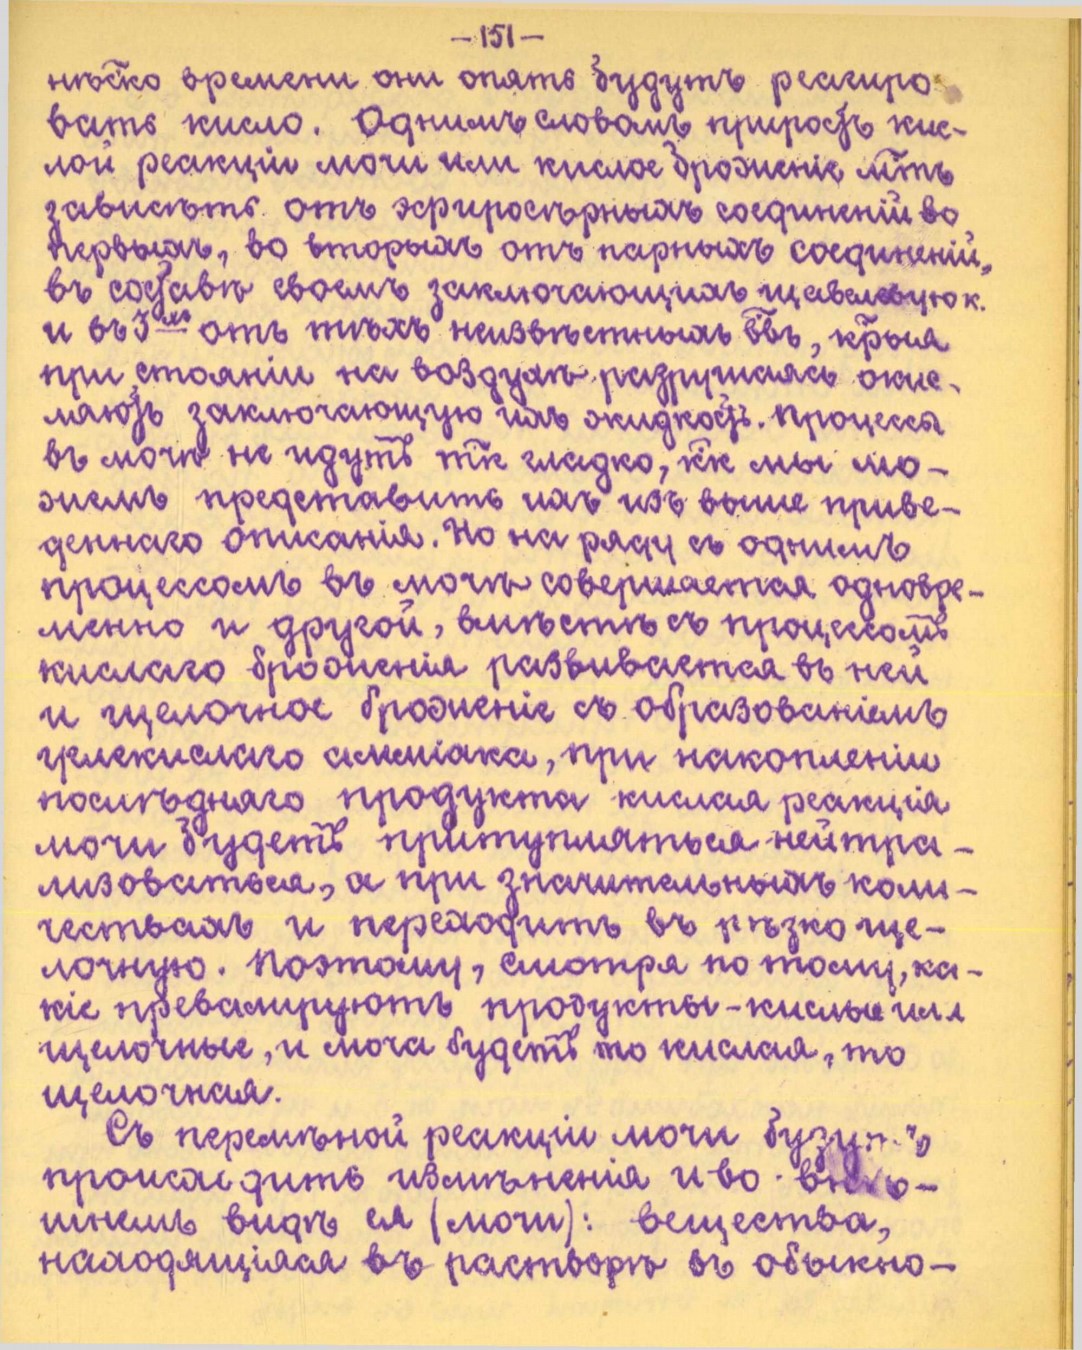 -151-
нѣско времени они опять будутъ реагиро
вать кисло. Однимъ словомъ приростъ кис-
лой реакціи мочи или кислое броженіе м͞тъ
зависѣть отъ эфиросѣрныхъ соединеній во
первыхъ, во вторыхъ отъ парныхъ соединеній,
въ составѣ своемъ заключающихъ щавелевую к.
и въ 3хъ отъ тѣхъ неизвѣстныхъ в͞въ, к͞рыя
при стояніи на воздухѣ разрушаясь окис-
ляютъ заключающую ихъ жидкость. Процессы
въ мочѣ не идутъ т͞к гладко, к͞к мы мо-
жемъ представить ихъ изъ выше приве-
деннаго описанія. Но на ряду съ однимъ
процессомъ въ мочѣ совершается одновре-
менно и другой, вмѣстѣ съ процессомъ
кислаго броженія развивается въ ней
и щелочное броженіе съ образованіемъ
углекислаго амміака, при накопленіи
послѣдняго продукта кислая реакція
мочи будетъ притупляться нейтра-
лизоваться, а при значительныхъ коли-
чествахъ и переходить въ рѣзко ще-
лочную. Поэтому, смотря по тому, ка-
кіе превалируютъ продукты-кислые или
щелочные, и моча будетъ то кислая, то
щелочная.
Съ перемѣной реакціи мочи будутъ
происходить измѣненія и во внѣ-
шнемъ видѣ ея (мочи): вещества,
находящіяся въ растворѣ въ обыкно-